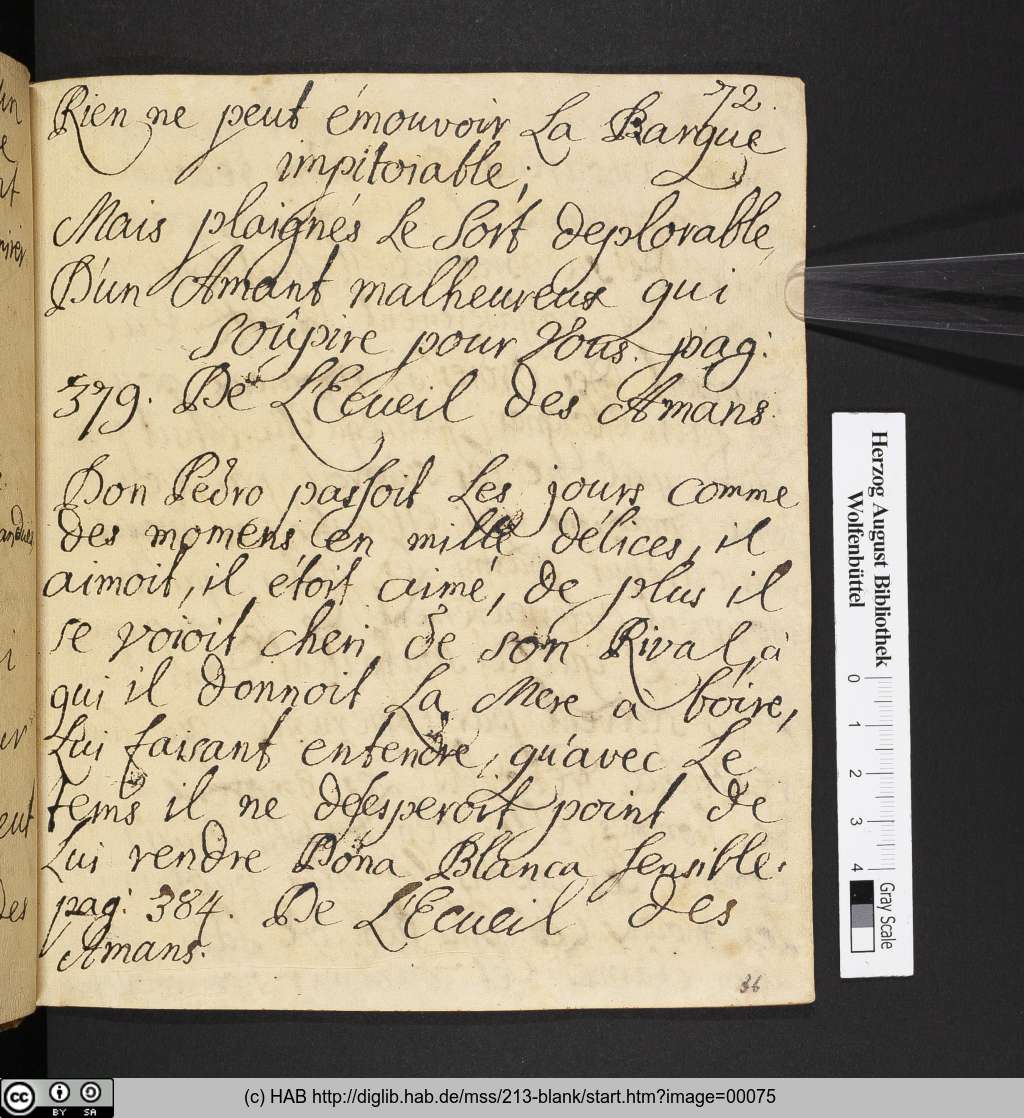 72.
Rien ne peut émouvoir La Barque
impitoiable;
Mais plaignés Le Sort deplorable,
D'un Amant malheureux qui
Soûpire pour Vous. pag:
379. De L'Ecueil des Amans.
Don Pedro passoit Les jours comme
des momens en mille délices, il
aimoit, il étoit aimé, de plus il
se voioit cheri de son Rival, à
qui il donnoit La Mere à boire,
Lui faisant entendre, qu'avec Le
tems il ne desesperoit point de
Lui rendre Dona Blanca sensible.
pag: 384. De L'Ecueil des
Amans.
36
Herzog August Bibliothek
Wolfenbüttel
0 1 2 3 4
Gray Scale
cc BY SA
(c) HAB http://diglib.hab.de/mss/213-blank/start.htm?image=00075